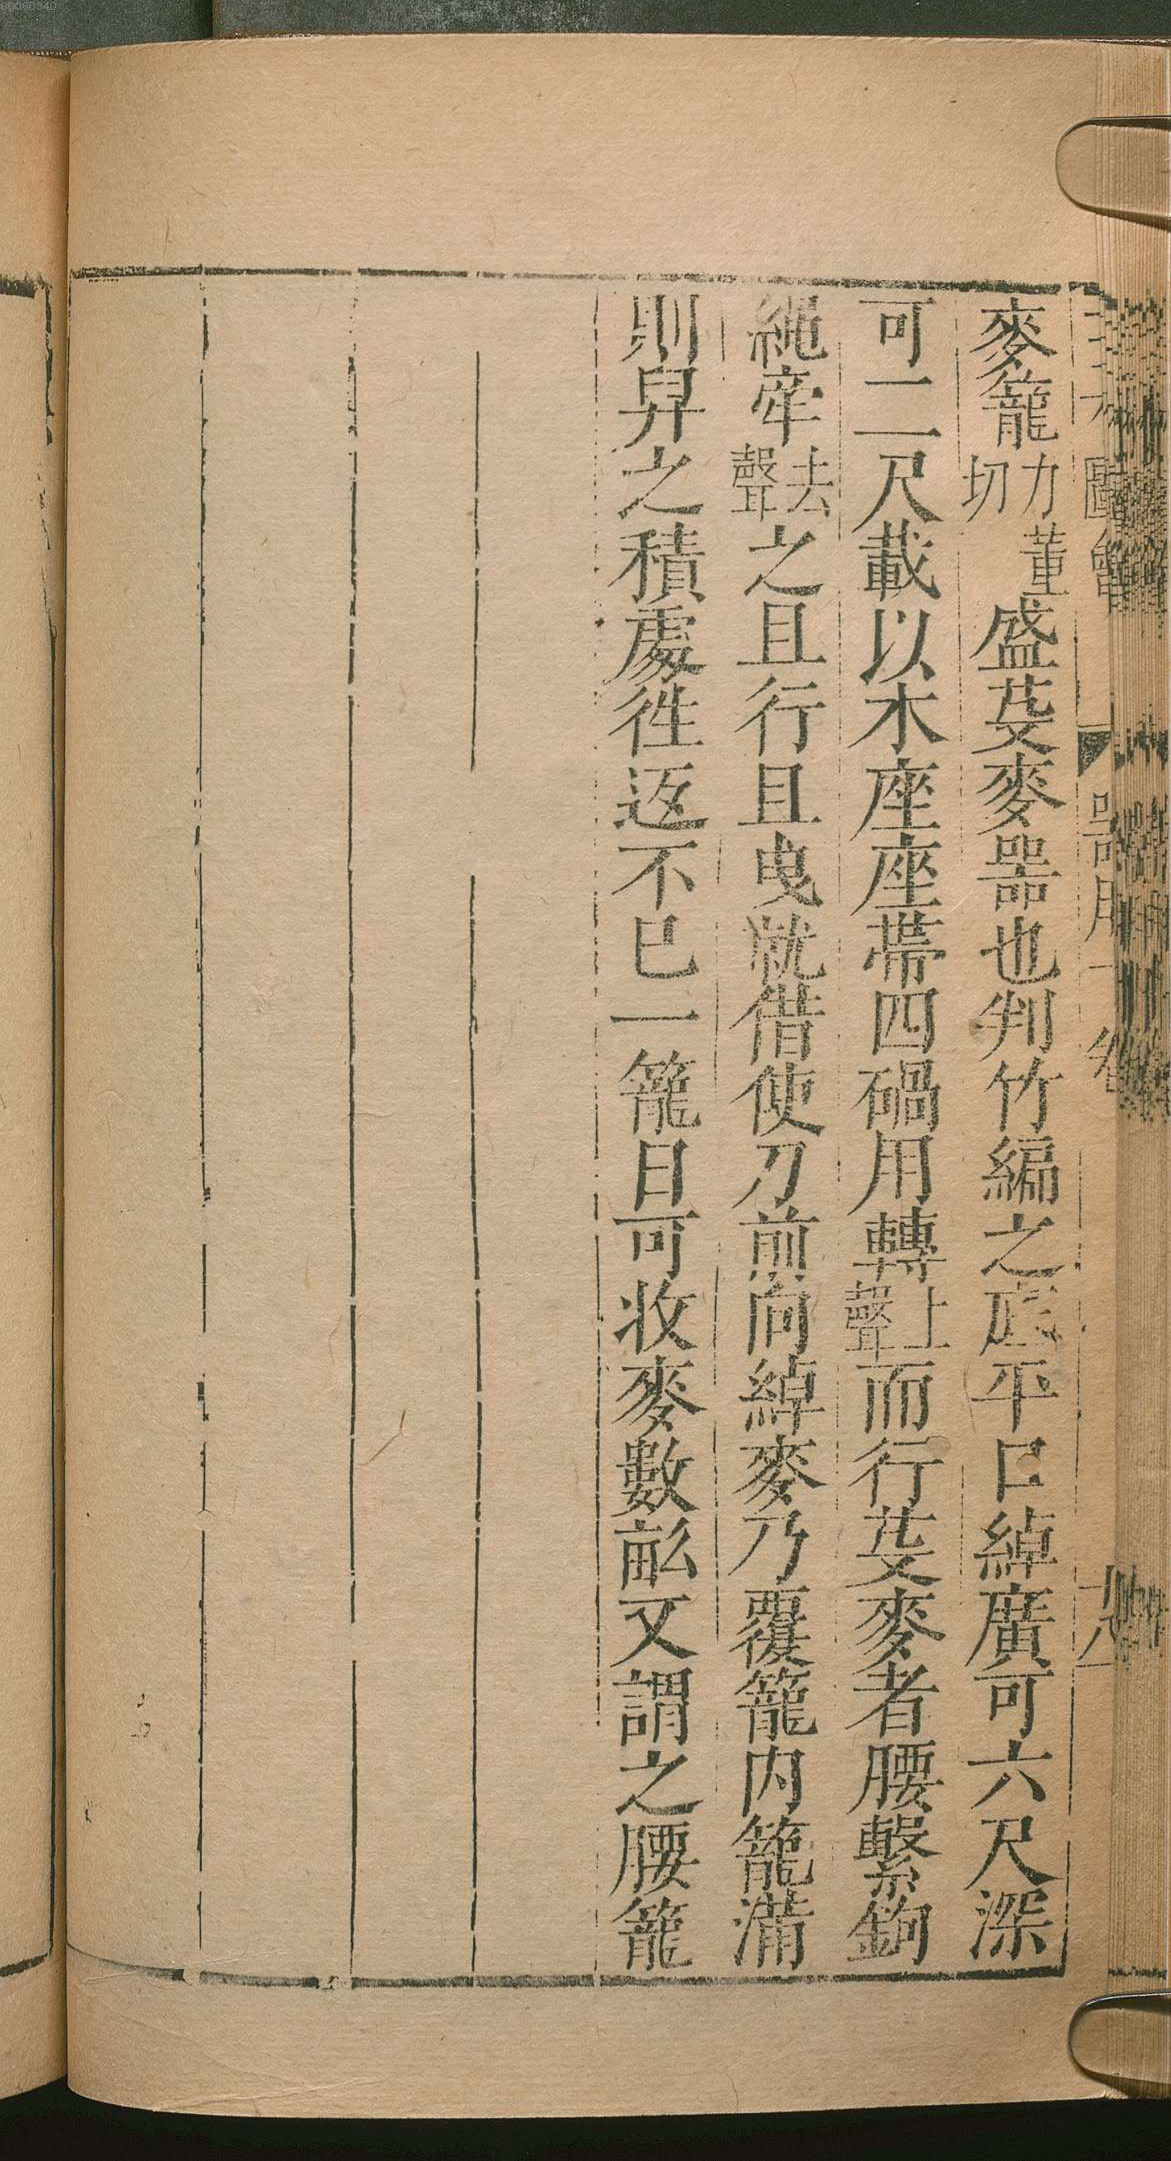 麥籠力董切盛芟麥器也判竹編之底平口綽廣可六尺深
可二尺載以木座座帶四碢用轉上聲而行芟麥者腰繫鉤
繩牽去聲之且行且曳就借使刀前向綽麥乃覆籠內籠滿
則舁之積處徃返不已一籠日可收麥數畝又謂之腰籠
三才圖會
器用十卷
00060340